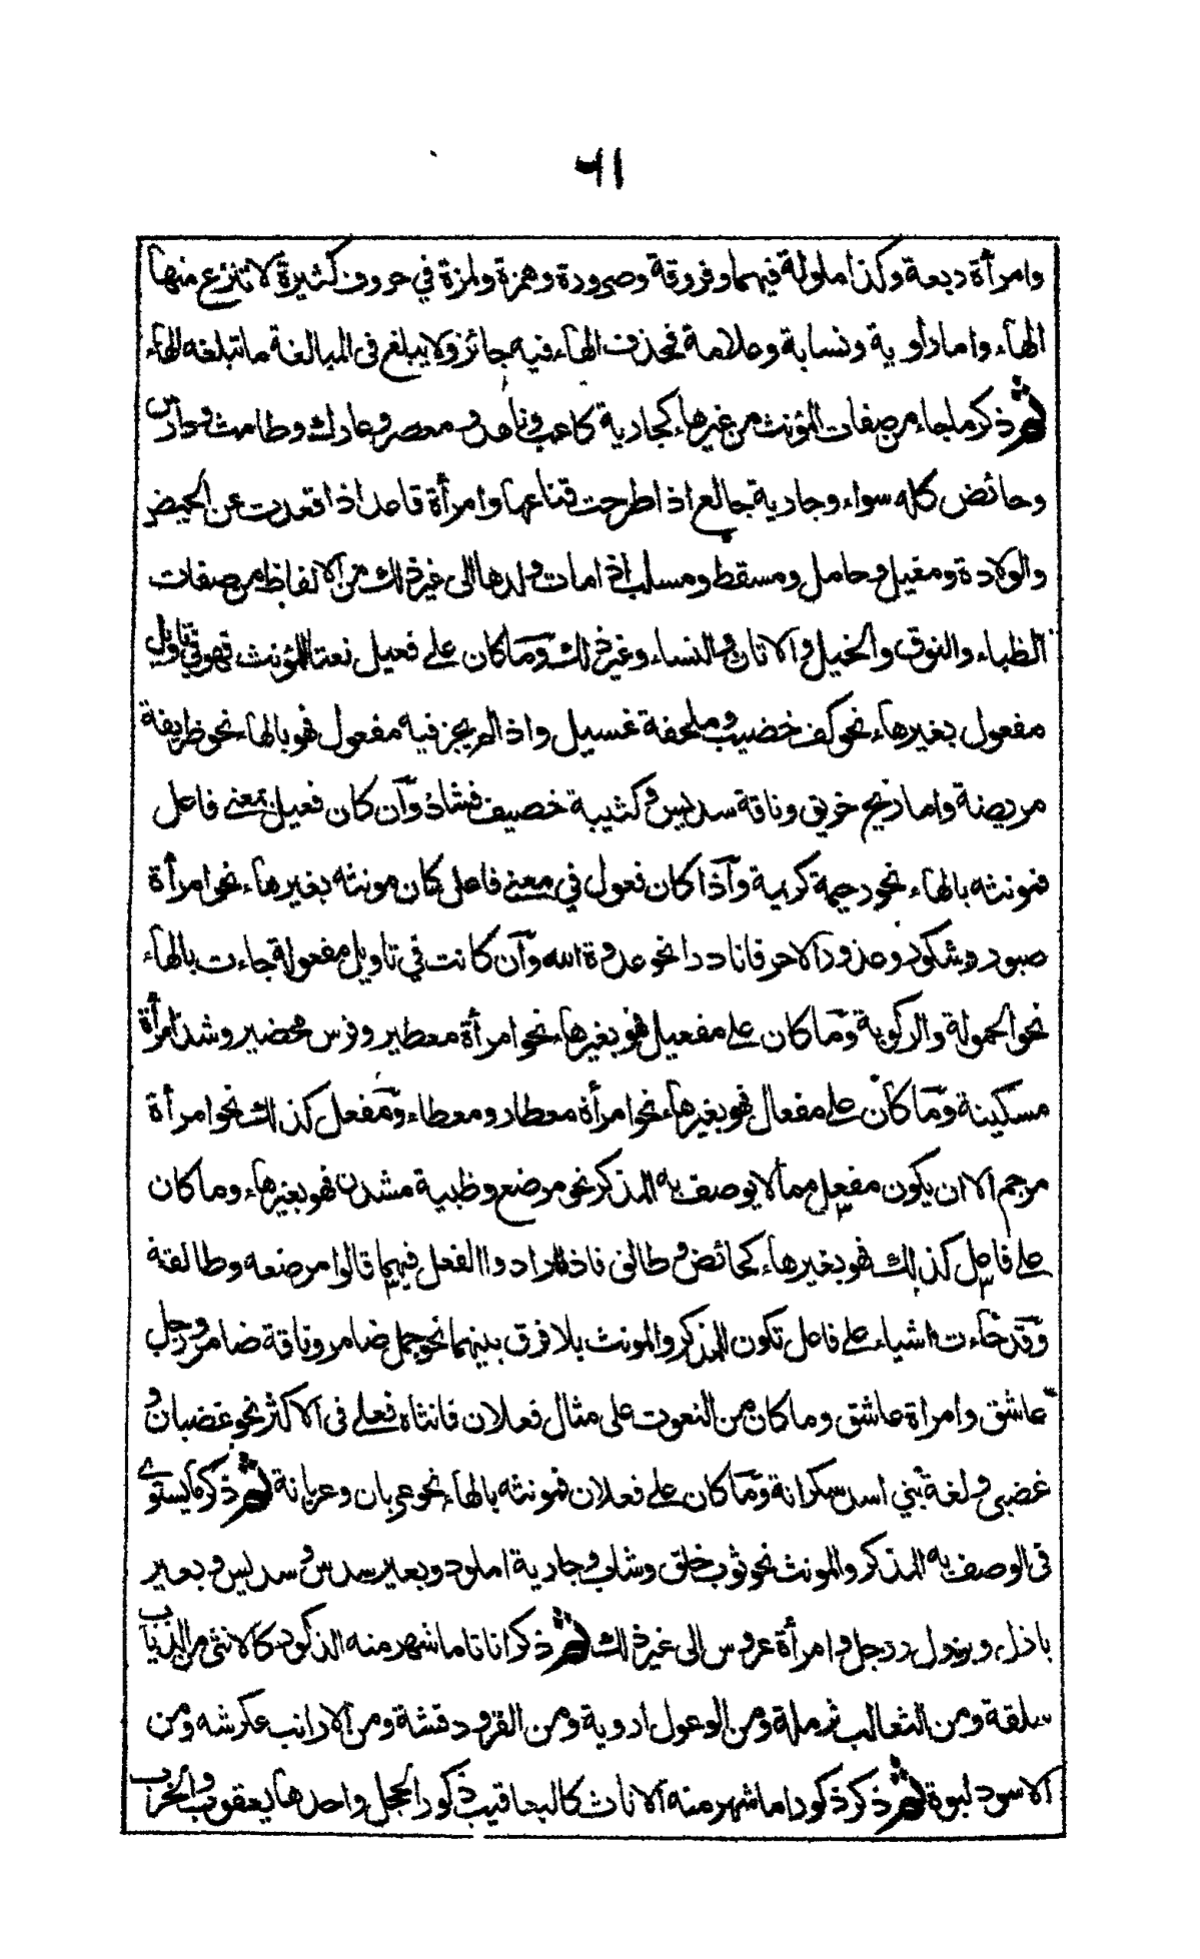 ٦١
وامرأة ربعة وكذا ملولة فيهما وفروقة وصرورة وهمزة ولمزة في حروف كثيرة لا تنزع منها
الهاء واما راوية ونسابة وعلامة فحذف الهاء فيه جائز ولا يبلغ في المبالغة ما تبلغه الهاء
ثم ذكر ما جاء من صفات المؤنث من غير هاء كجارية كاعب وناهد ومعصر وعارك وطامث ودارس
وحائض كله سواء وجارية جالع اذا طرحت قناعها وامرأة قاعد اذا قعدت عن الحيض
والولادة ومغيل وحامل ومسقط ومسلب اذا مات ولدها الى غير ذلك من الالفاظ من صفات
الظباء والنوق والخيل والاتان والنساء وغير ذلك وما كان على فعيل نعتا للمؤنث فهو في تاويل
مفعول بغير هاء نحو كف خضيب وملحفة غسيل واذا لم يجز فيه مفعول فهو بالهاء نحو ظريفة
مريضة واما ريح خريق وناقة سديس وكثيبة خصيف فشاذ وان كان فعيل بمعنى فاعل
فمونثه بالهاء نحو رحيمة كريمة واذا كان فعول في معنى فاعل كان مونثه بغير هاء نحو امرأة
صبور وشكور وعذور الا حرفا نادرا نحو عدوة الله وان كانت في تاويل مفعولة جاءت بالهاء
نحو الحمولة والركوبة وما كان على مفعيل فهو بغير هاء نحو امرأة معطير وفرس محضير وشذ امرأة
مسكينة وما كان على مفعال فهو بغير هاء نحو امرأة معطار ومعطاء ومفعل كذلك نحو امرأة
مرجم الا ان يكون مفعل مما لا يوصف به المذكر نحو مرضع وظبية مشدن فهو بغير هاء وما كان
على فاعل كذلك فهو بغير هاء كحائض وطالق فاذا ارادوا الفعل فيهما قالوا مرضعه وطالقة
وقد جاءت اشياء على فاعل تكون للمذكر والمونث بلا فرق بينهما نحو جمل ضامر وناقة ضامر ورجل
عاشق وامراة عاشق وما كان من النعوت على مثال فعلان فانثاه فعلى في الاكثر نحو غضبان و
غضبى ولغة بني اسد سكرانة وما كان على فعلان فمونثه بالهاء نحو عريان وعريانة ثم ذكر ما يستوى
في الوصف به المذكر والمونث نحو ثوب خلق وشاب وجارية املود وبعير سدس وسديس وبعير
بازل وبزول ورجل وامرأة عروس الى غير ذلك ثم ذكر اناثا ما شهر منه الذكور كالانثى من الذئاب
سلقة ومن الثعالب ثرملة ومن الوعول اروية ومن القرود قشة ومن الارانب عكرشه ومن
الاسود لبوة ثم ذكر ذكور اما شهر منه الاناث كاليعاقيب ذكور الحجل واحدها يعقوب والخرب